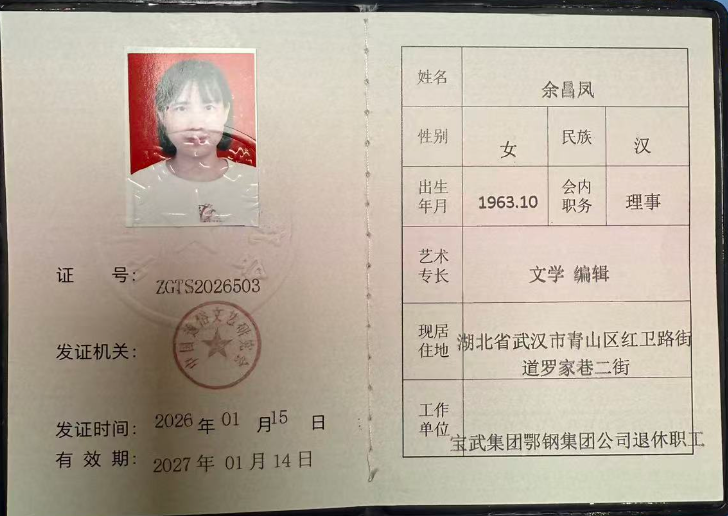 证 号: ZGTS2026503
中国通俗文艺研究会
发证机关:
发证时间: 2026 年 01 月 15 日
有 效 期: 2027 年 01 月 14 日
姓名 余昌凤
性别 女 民族 汉
出生年月 1963.10 会内职务 理事
艺术专长 文学 编辑
现居住地 湖北省武汉市青山区红卫路街
道罗家巷二街
工作单位 宝武集团鄂钢集团公司退休职工